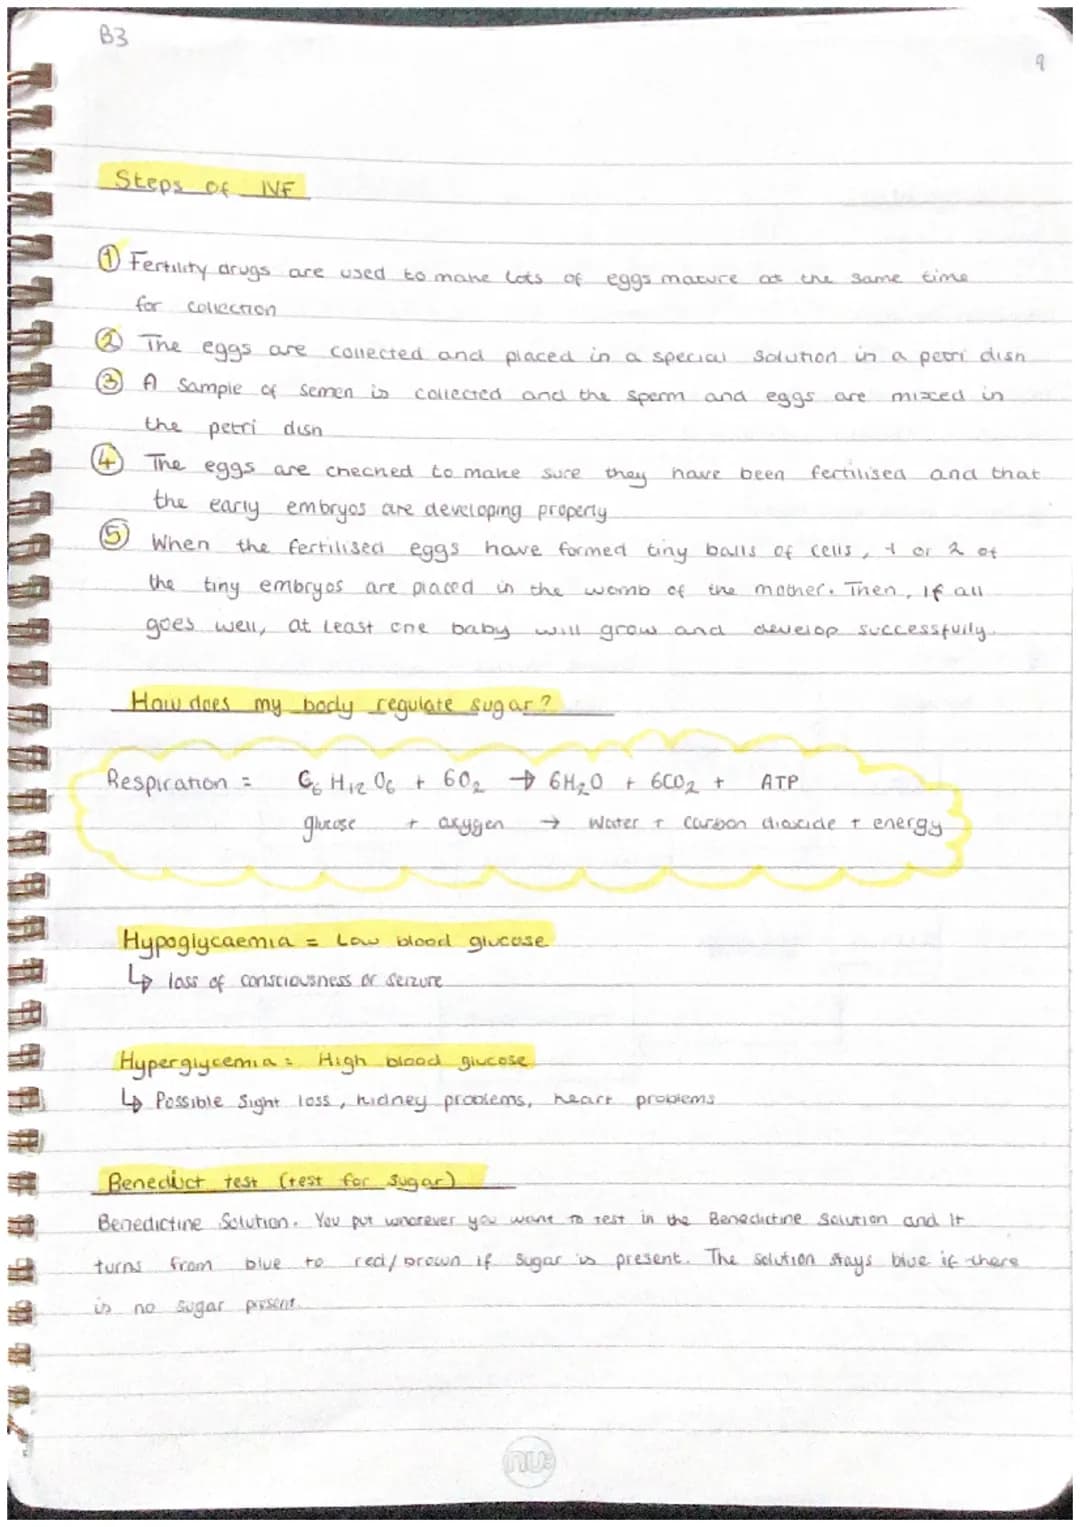 B3
9
Steps of IVF
① Fertility drugs are used to make lots of eggs mature at the same time
for collection
② The eggs are collected and placed in a special solution in a petri dish
③ A sample of semen is collected and the sperm and eggs are mixed in
the petri dish
④ The eggs are checked to make sure they have been fertilised and that
the early embryos are developing properly
⑤ When the fertilised eggs have formed tiny balls of cells, 1 or 2 of
the tiny embryos are placed in the womb of the mother. Then, if all
goes well, at least one baby will grow and develop successfully.
How does my body regulate sugar?
Respiration = C₆H₁₂O₆ + 6O₂ → 6H₂O + 6CO₂ + ATP
glucose + oxygen → water + carbon dioxide + energy
Hypoglycaemia = Low blood glucose
↳ loss of consciousness or seizure
Hyperglycemia = High blood glucose
↳ Possible sight loss, kidney problems, heart problems
Benedict test (test for sugar)
Benedictine Solution. You put whatever you want to test in the Benedictine solution and it
turns from blue to red/brown if sugar is present. The solution stays blue if there
is no sugar present.
nu: